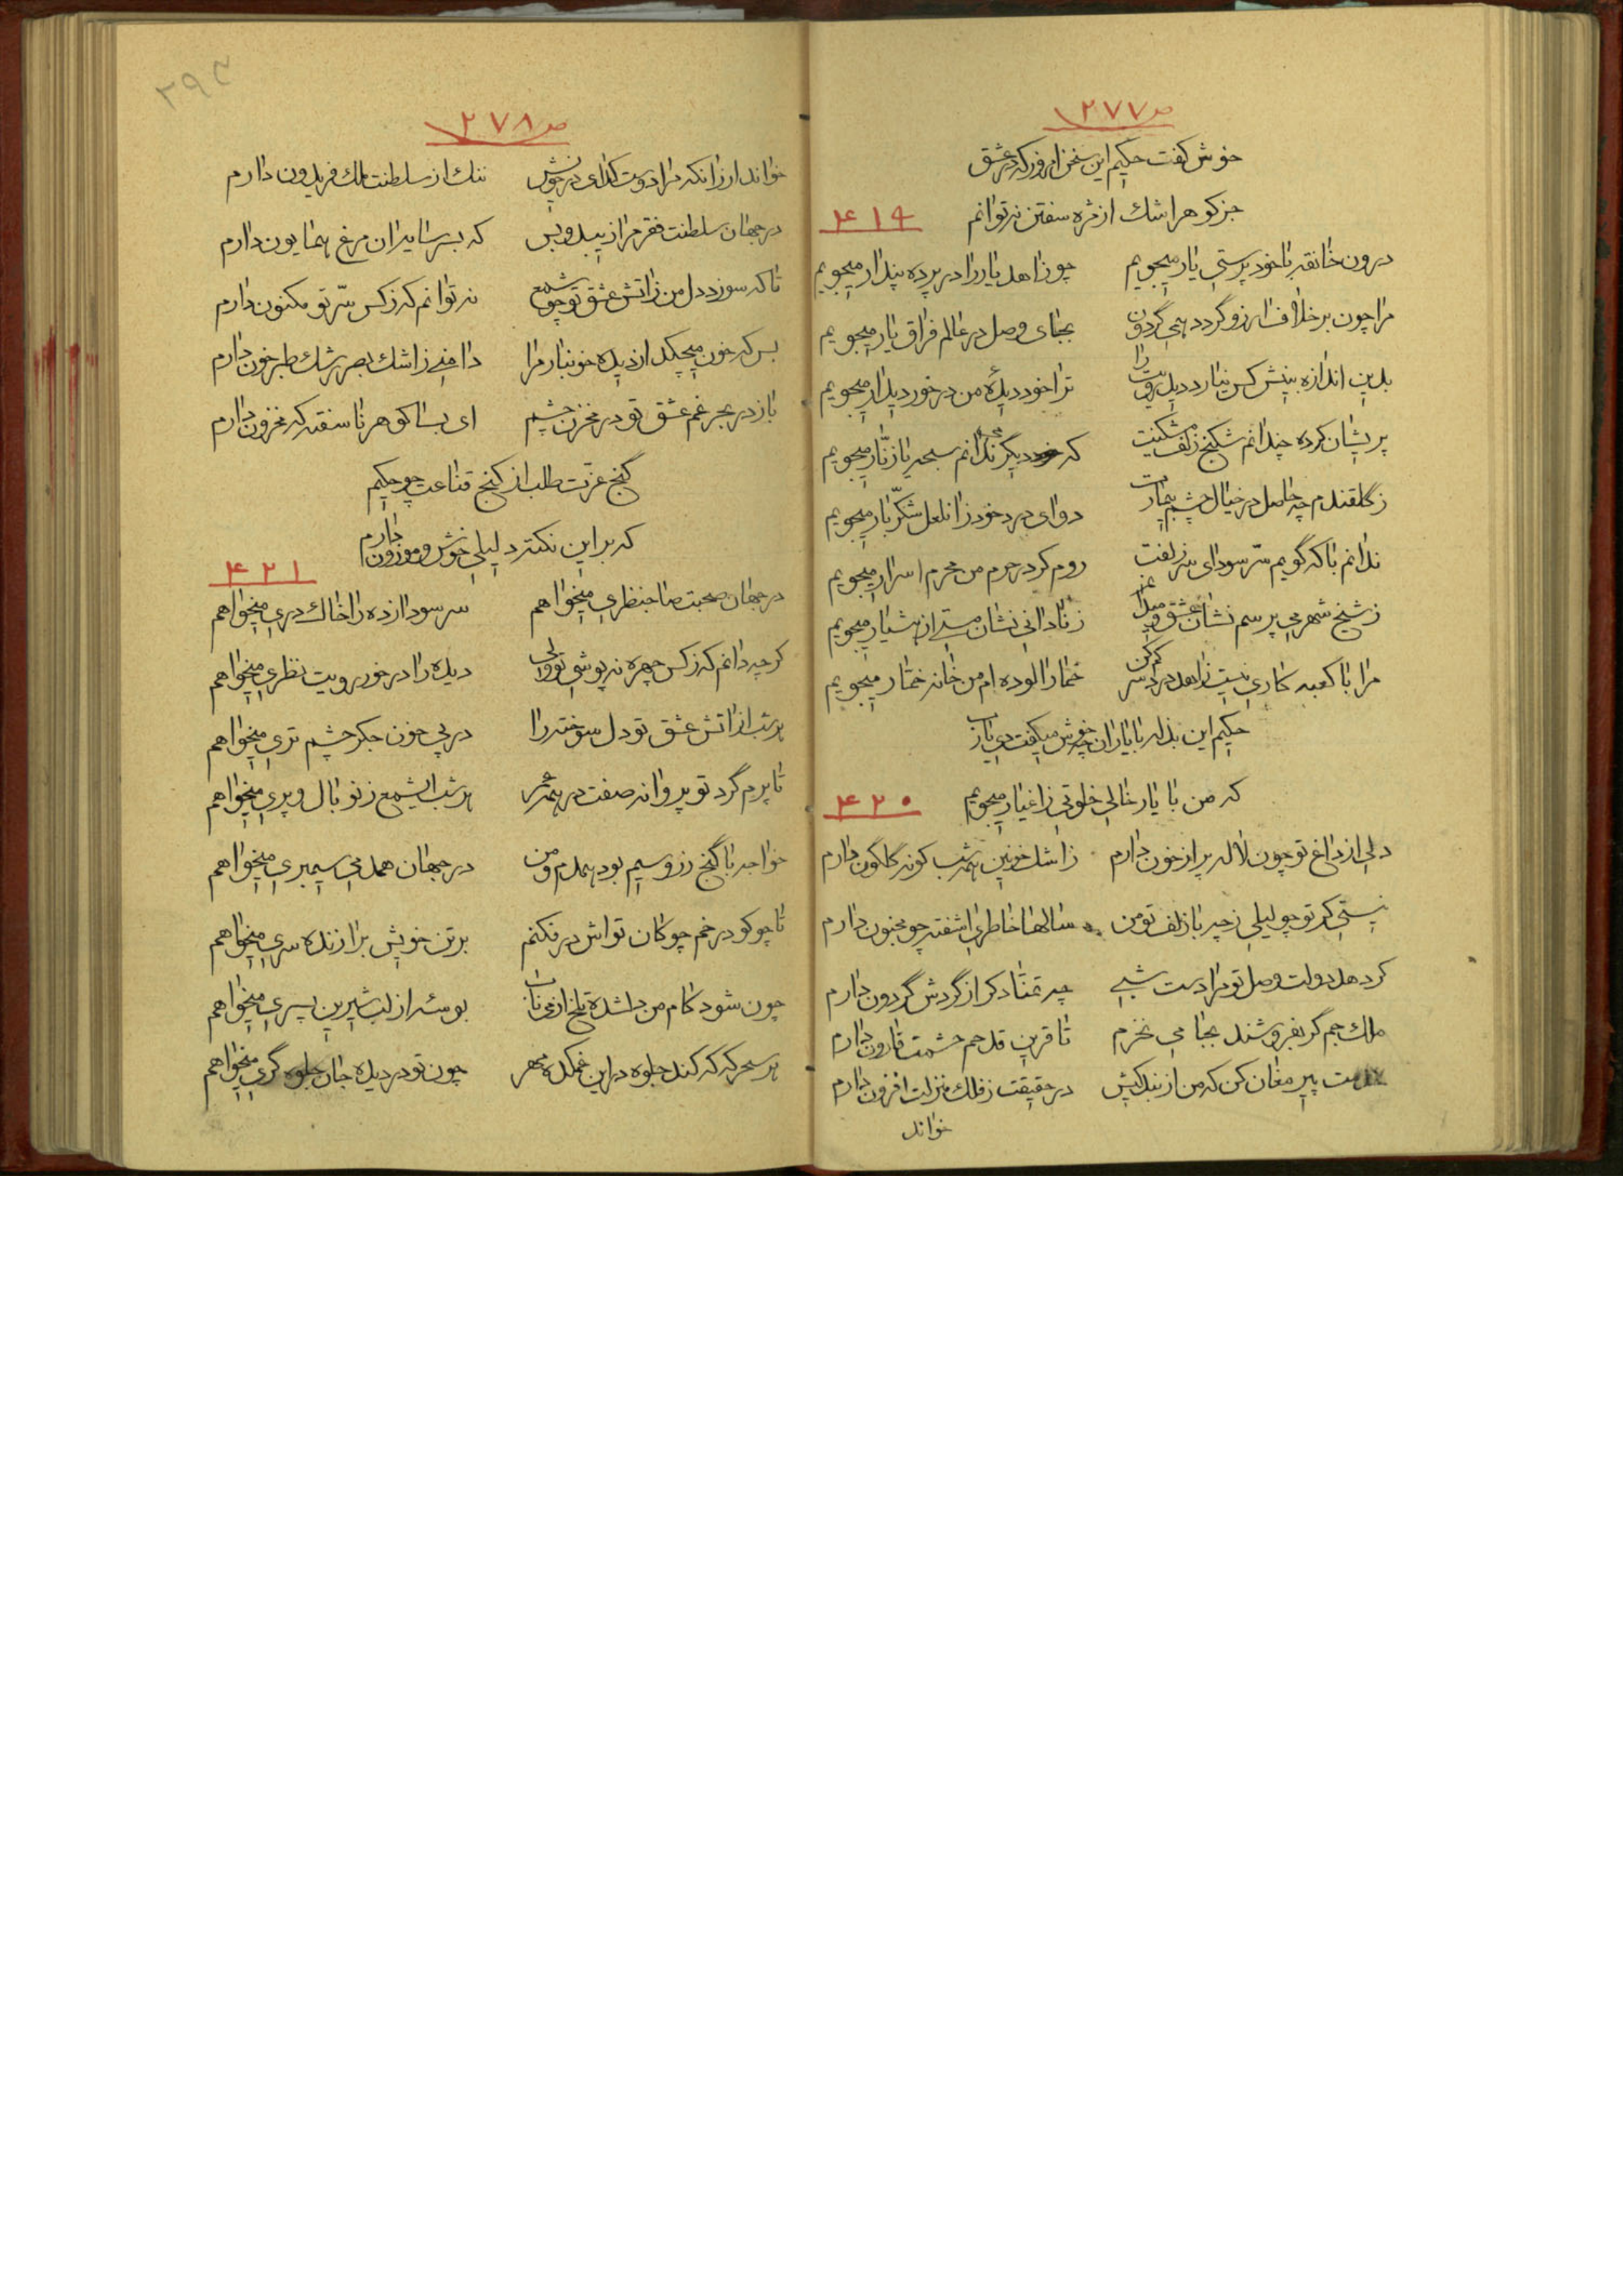 ص ۲۷۷
خوش کفت حکیم این سخن امروز که در عشق
جز کوهر اشک از مژه سفتن نه توانم
۴۱۹
درون خانقه با خود پرستی یار میجویم چو زاهد یار را در پرده پندار میجویم
مرا چون بر خلاف ارزو گردد همی گردون بجای وصل در عالم فراق یار میجویم
بدین اندازه بینش کس نیارد دید رویت را ترا خود دیدهٔ من در خور دیدار میجویم
پریشان کرده چندانم شکنج زلف مشکینت که دیگر ندانم سبحه یا زنّار میجویم
ز گلقندم چه حاصل در خیال چشم بیمارت دوای درد خود زان لعل شکّر بار میجویم
ندانم با که گویم سّر سودای سر زلفت روم کرد حرم من محرم اسرار میجویم
ز شیخ شهر می پرسم نشان عشق و میدانم ز نادانی نشان مستی از هشیار میجویم
مرا با کعبه کاری نیست زاهد درد سر کم کن خمار الوده ام من خانه خمّار میجویم
حکیم این بذله با یاران چه خوش میکفت دی باز
که من با یار خالی خلوتی ز اغیار میجویم
۴۲۰
دلی از داغ تو چون لاله پر از خون دارم ز اشک خونین همه شب کونه گلگون دارم
نیستی کر تو چو لیلی ز چه با زلف تو من سالها خاطری اشفته چو مجنون دارم
کر دهد دولت وصل تو مرا دست شبی چه تمنّا دکر از گردش گردون دارم
ملک جم گر بفروشند بجامی نخرم تا قرین قدحم حشمت قارون دارم
پیر مغان کن که من از بندکیش در حقیقت ز فلک منزلت افزون دارم
خواند
۲۹۳
ص ۲۷۸
خواند ار زانکه مرا دوست کدای در خویش ننک از سلطنت ملک فریدون دارم
در جهان سلطنت فقر مرا زیبد و بس که بسر سایه ان مرغ همایون دارم
تا که سوزد دل من ز اتش عشق تو چو شمع نه توانم که ز کس سّر تو مکنون دارم
بس که خون میچکد از دیده خونبار مرا دامنی ز اشک بصر رشک طبر خون دارم
باز در بحر غم عشق تو در مخزن چشم ای بسا کوهر ناسفته که مخزون دارم
گنج عزت طلب از کنج قناعت چو حکیم
که بر این نکته دلیلی خوش و موزون دارم
۴۲۱
در جهان صحبت صاحبنظری میخواهم سر سودا زده را خاک دری میخواهم
کرچه دانم که ز کس چهره نه پوشی تو ولی دیده را در خور رویت نظری میخواهم
هر شب از اتش عشق تو دل سوخته را در پی خون جکر چشم تری میخواهم
تا پرم گرد تو پروانه صفت در همه عمر هر شب ای شمع ز نو بال و پری میخواهم
خواجه با گنج زر و سیم بود همدم و من در جهان همدمی سیمبری میخواهم
تا چو کو در خم چوکان تواش در فکنم بر تن خویش برازنده سری میخواهم
چون شود کام من دلشده تلخ از می ناب بوسه از لب شیرین پسری میخواهم
هر سحر که که کند جلوه در این غمکده مهر چون تو در دیده جان جلوه گری میخواهم